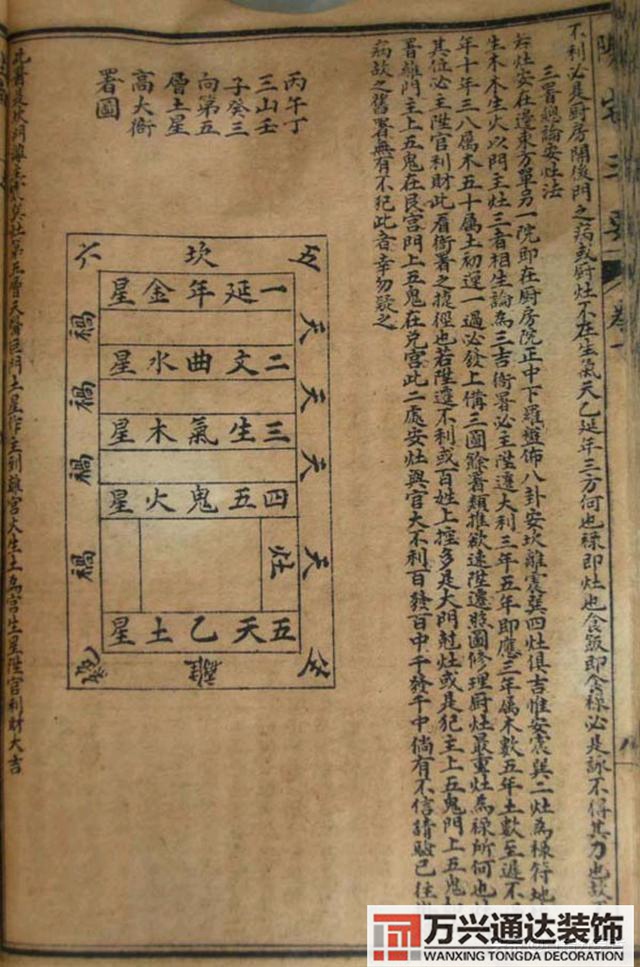 陽宅三要 卷一
不利必是厨房開後門之病或厨灶不在生氣天乙延年三方何也祿即灶也食飯即食祿必是詠不得其力也
三署總論安灶法
右灶安在邊東方單另一院即在厨房院正中下羅盤佈八卦安坎離震巽四灶俱吉惟安震巽二灶為祿符地
生木木生火以門主灶三者相生論為三吉衙署必主陞遷大利三年五年即應三年屬木數五年土數至遲不
年十年三八屬木五十屬土初運一過必發上偹三圖餘署類推欲速陞遷照圖修理厨灶最重灶為祿所何也
其位必主陞官利財此看衙署之捷徑也若陞遷不利或百姓上控多是大門尅灶或是犯主上五鬼門上五鬼
署離門主上五鬼在艮宮門上五鬼在兌宮此二處安灶與官大不利百發百中千發千中倘有不信請驗已往
病故之舊署無有不犯此者幸勿疑之
丙午丁
三山壬
子癸三
向第五
層土星
高大衙
署圖
五
坎
六
一延年金星
天
禍
二文曲水星
天
禍
三生氣木星
天
禍
四五鬼火星
天
禍
灶
五天乙土星
離
此署是坎門離主巽灶第五層天醫巨門土星作主到離宮火生土為宮生星陞官利財大吉
万兴通达装饰
WANXING TONGDA DECORATION